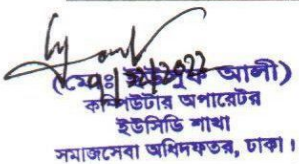 (মোঃ আলী)
কম্পিউটার অপারেটর
ইউসিডি শাখা
সমাজসেবা অধিদফতর, ঢাকা।